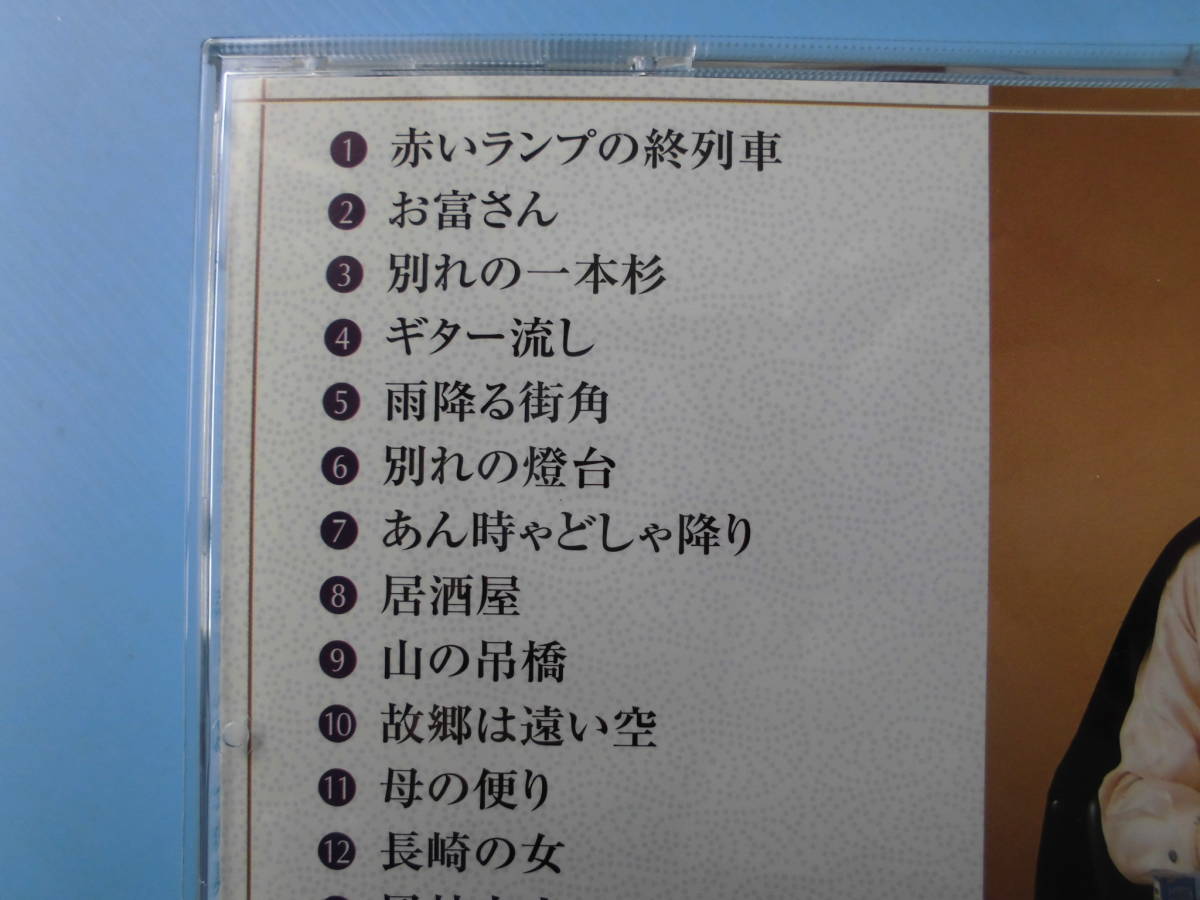 1 赤いランプの終列車
2 お富さん
3 別れの一本杉
4 ギター流し
5 雨降る街角
6 別れの燈台
7 あん時ゃどしゃ降り
8 居酒屋
9 山の吊橋
10 故郷は遠い空
11 母の便り
12 長崎の女